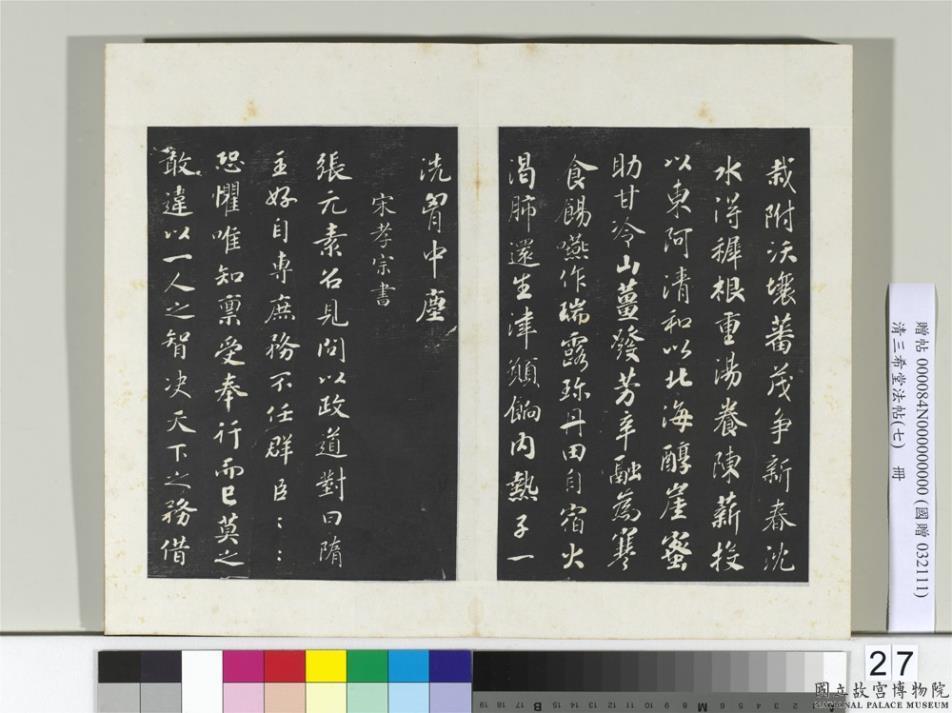 栽附沃壤蕃茂争新春沈
水淂穉根重湯養陳薪投
以東阿清和以北海醇崖蜜
助甘冷山薑發芳辛融為寒
食餳嚥作瑞露珎丹田自宿火
渴肺還生津願餉內熱子一
洗胷中塵
宋孝宗書
張元素召見問以政道對曰隋
主好自專庶務不任群臣〻〻
恐懼唯知禀受奉行而已莫之
敢違以一人之智决天下之務借
贈帖 000084N000000000 (國贈 032111)
清三希堂法帖(七) 冊
27
國立故宮博物院
NATIONAL PALACE MUSEUM